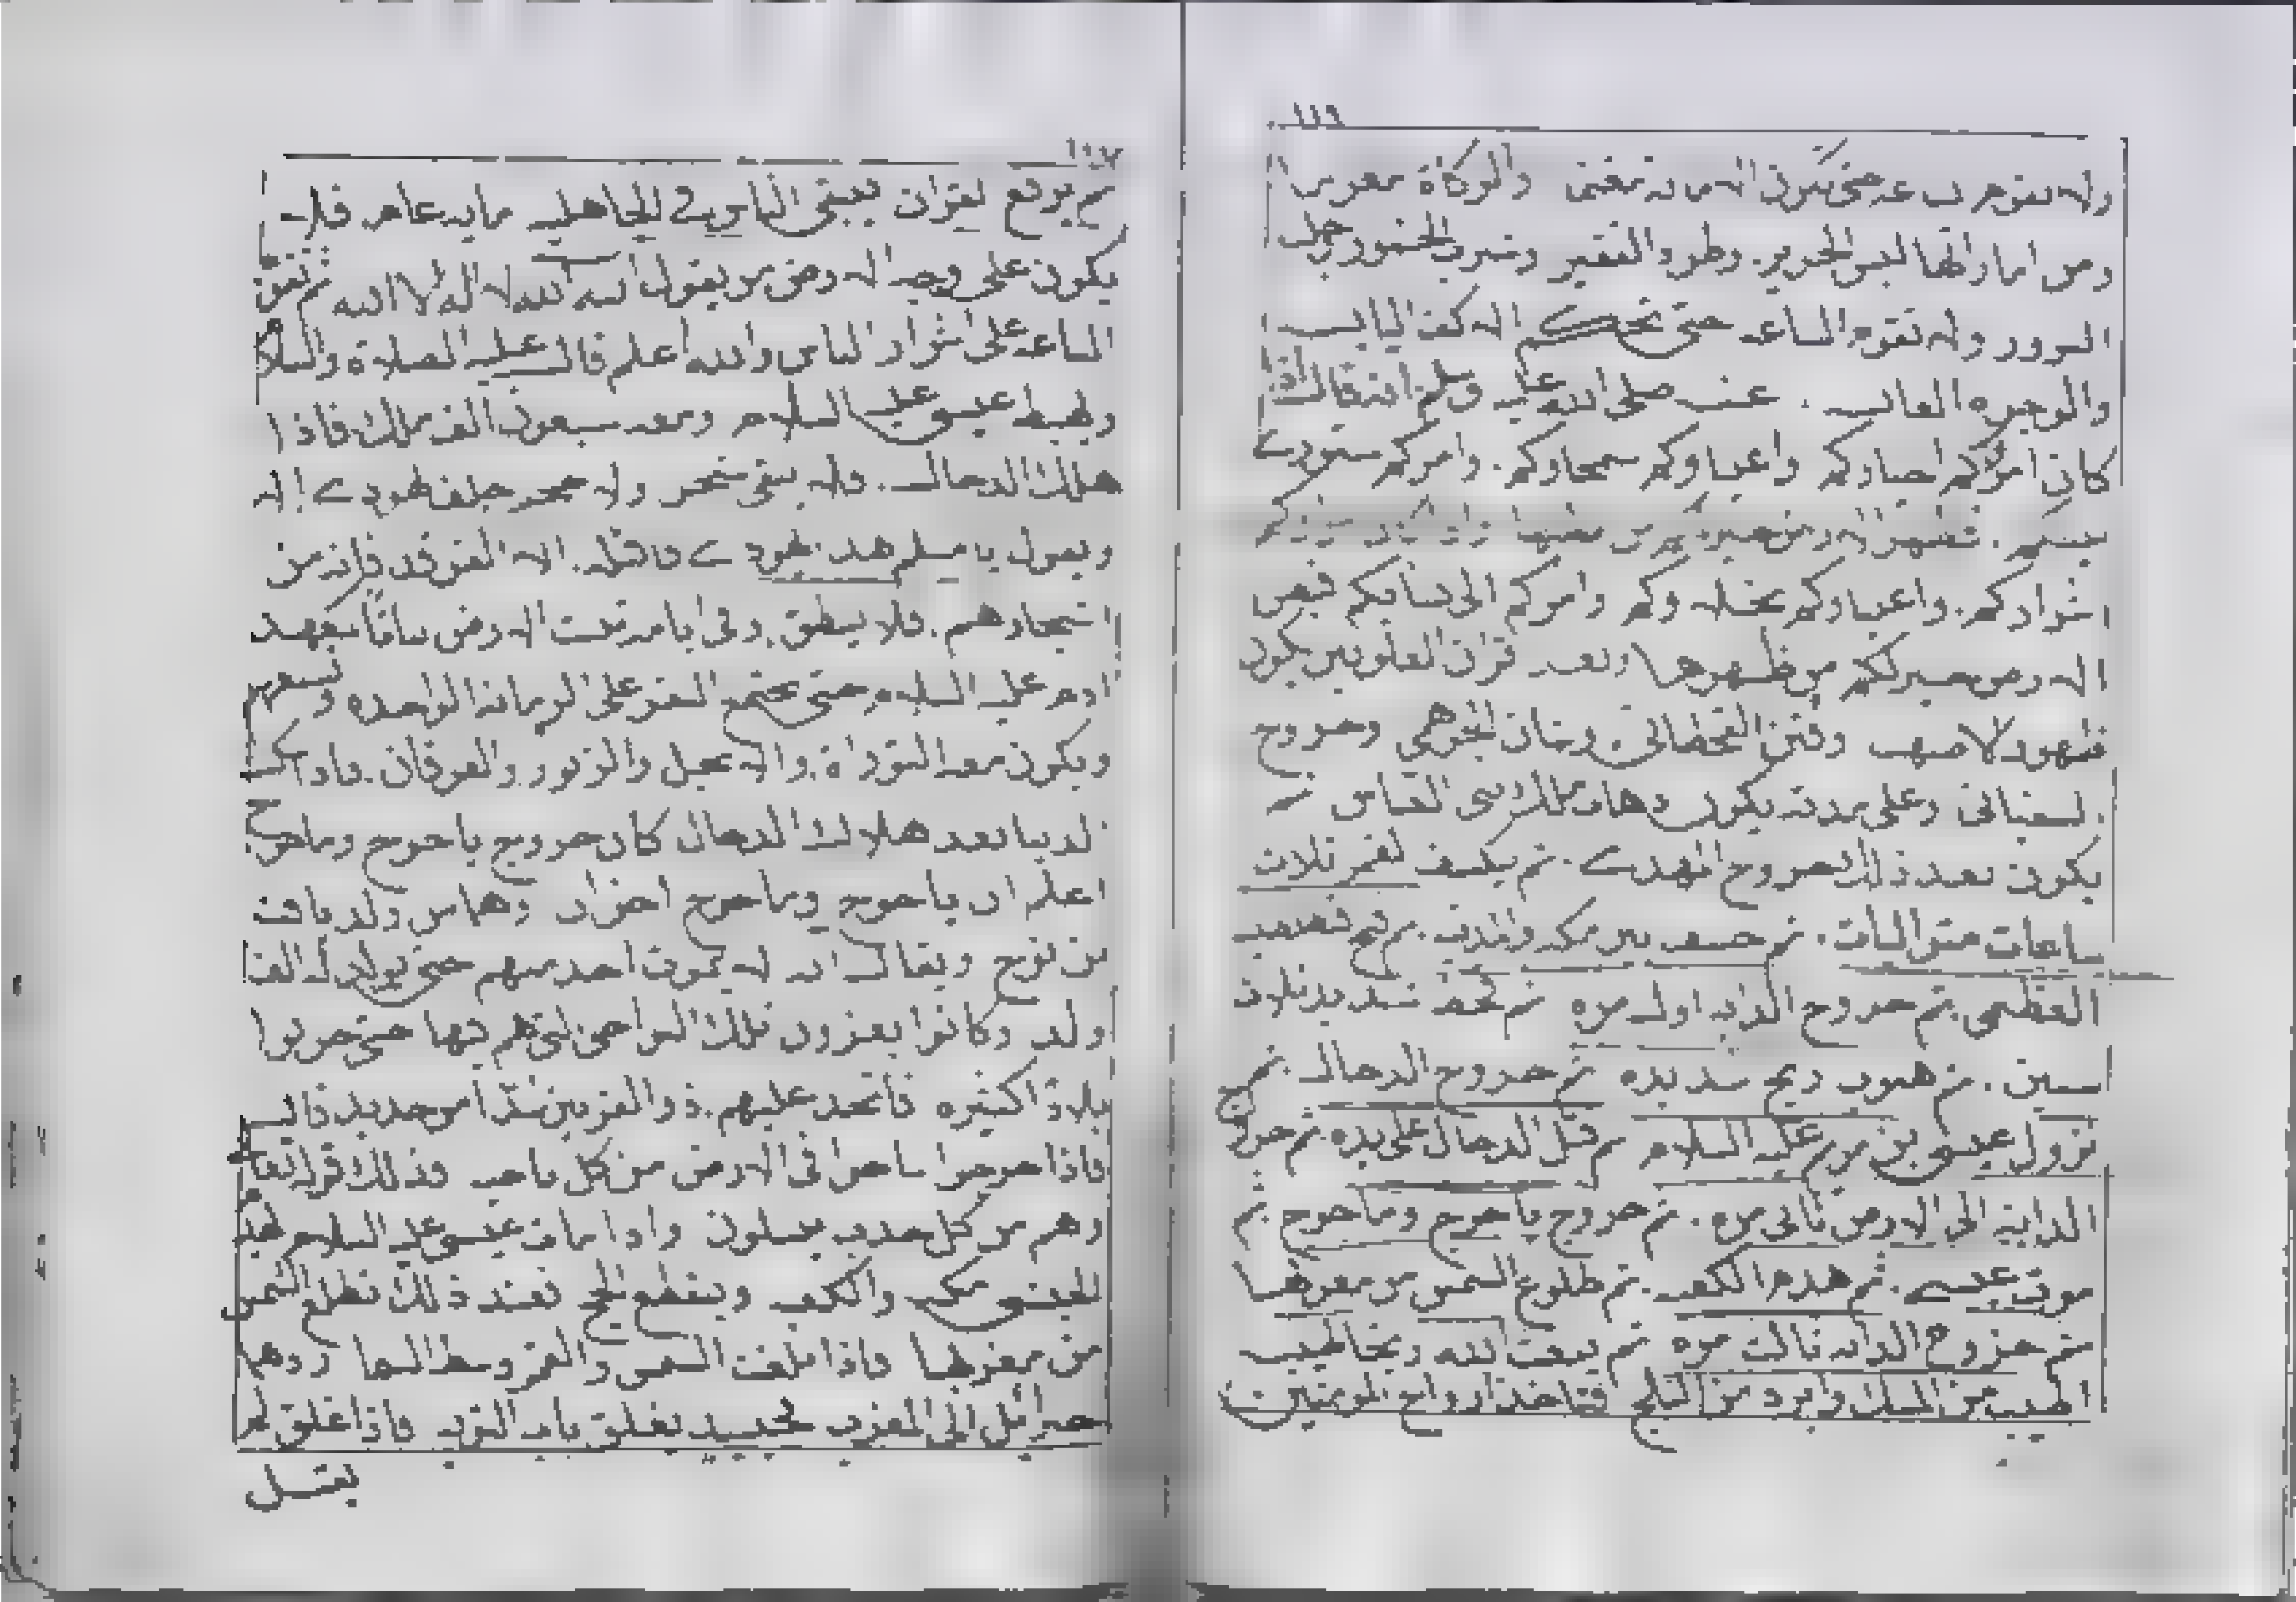 ولا تقوم الساعة حتى تكون الامانه مغنما والزكاة مغرما
ومن اماراتها لبس الحرير وشرب الخمور
الزور ولا تقوم الساعه حتى
عنه صلى الله عليه وسلم انه قال اذا
كان امراوكم خياركم واغنياوكم سمحاوكم وامركم شورى
بينكم فظهر الارض خير لكم من بطنها واذا كان امراوكم
شراركم واغنياوكم بخلاوكم وامركم الى نسايكم فبطن
الارض خير لكم من ظهرها وبعد قران العلويين يكون
ظهور الاصهب وفتن القحطاني وخروج
السفياني وعلى مدته يكون ملك بني العباس
يكون بعد ذلك خروج المهدى ثم يكسف القمر ثلاث
ساعات متواليات ثم خسف بين مكه والمدينه ثم
العظمى ثم خروج الدابه اول مره ثم قحط شديد ثلاث
سنين ثم هبوب ريح شديده ثم خروج الدجال ثم
نزول عيسى بن مريم عليه السلام ثم قتل الدجال على يده ثم خروج
الدابه الى الارض ثانى مره ثم خروج ياجوج وماجوج ثم
موت عيسى ثم هدم الكعبه ثم طلوع الشمس من مغربها
ثم خروج الدابه ثالث مره ثم يبعث الله ريحا طيبه
اطيب من المسك وابرد من الثلج فتاخذ ارواح المومنين
ثم يرفع القران فيبقى الناس في الجاهليه مايه عام فلا
يكون على وجه الارض من يقول الله الله لا اله الا الله ثم تقوم
الساعه على اشرار الناس والله اعلم قال عليه الصلاة والسلام
ويهبط عيسى عليه السلام ومعه سبعون الف ملك فاذا
هلك الدجال ولا يبقى شجر ولا حجر خلفه يهودى الا
ويقول يا مسلم هذا يهودى فاقتله الا الغرقد فانه من
اشجارهم فلا ينطق وفى ايامه تنبت الارض نباتا كعهد
ادم عليه السلام حتى يجتمع النفر على الرمانه الواحده وتسعهم
ويكون معه التوراة والانجيل والزبور والفرقان فاذا
الدنيا بعد هلاك الدجال كان خروج ياجوج وماجوج
اعلم ان ياجوج وماجوج اخوان وهما من ولد يافث
بن نوح ويقال انه لا يموت احد منهم حتى يولد له الف
ولد وكانوا يغزون تلك النواحى التى هم فيها حتى خربوا
بلادا كثيره فاتخذ عليهم ذو القرنين سدا من حديد قال
فاذا خرجوا ساحوا فى الارض من كل ناحيه وذلك قوله تعالى
وهم من كل حدب ينسلون واذا مات عيسى عليه السلام
مكه والكعبه وينقطع الحج فعند ذلك تطلع الشمس
من مغربها فاذا بلغت الشمس والقمر وسط السما ردهما
جبرائيل الى المغرب فحينيذ يغلق باب التوبه فاذا اغلق لم
يقبل